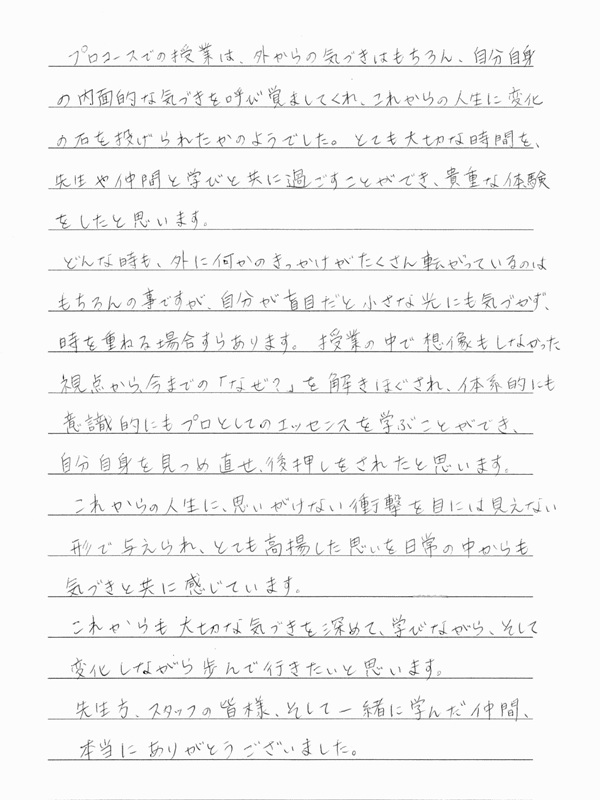 プロコースでの授業は、外からの気づきはもちろん、自分自身
の内面的な気づきを呼び覚ましてくれ、これからの人生に変化
の石を投げられたかのようでした。とても大切な時間を、
先生や仲間と学びと共に過ごすことができ、貴重な体験
をしたと思います。
どんな時も、外に何かのきっかけがたくさん転がっているのは
もちろんの事ですが、自分が盲目だと小さな光にも気づかず、
時を重ねる場合すらあります。授業の中で想像もしなかった
視点から、今までの「なぜ?」を解きほぐされ、体系的にも
意識的にもプロとしてのエッセンスを学ぶことができ、
自分自身を見つめ直せ、後押しをされたと思います。
これからの人生に、思いがけない衝撃を目には見えない
形で与えられ、とても高揚した思いを日常の中からも
気づきと共に感じています。
これからも大切な気づきを深めて、学びながら、そして
変化しながら歩んで行きたいと思います。
先生方、スタッフの皆様、そして一緒に学んだ仲間、
本当にありがとうございました。